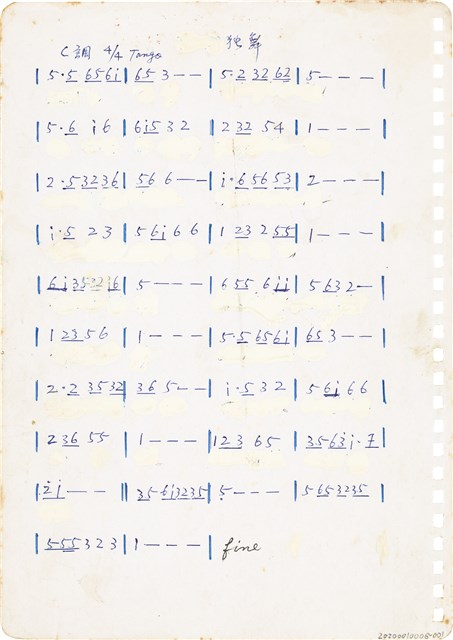 C調 4/4 Tango 独舞
| 5·5 656i | 653 - - | 5·2 3262 | 5 - - - |
5·6 i6 | 6i5 32 | 232 54 | 1 - - - |
| 2·53236 | 56 6 - - | i·65653 | 2 - - - |
| i·5 23 | 56i 66 | 1 23 255 | 1 - - - |
| 5 - - - | 655 6ii | 5632 - |
| 12356 | 1 - - - | 5·5656i | 653 - - |
| 2·2 3532 | 365 - - | i·532 | 56i 66 |
| 236 55 | 1 - - - | 123 65 | 3563i·7 |
| 2i - - | 356i3235 | 5 - - - | 5653235 |
| 555323 | 1 - - - | fine